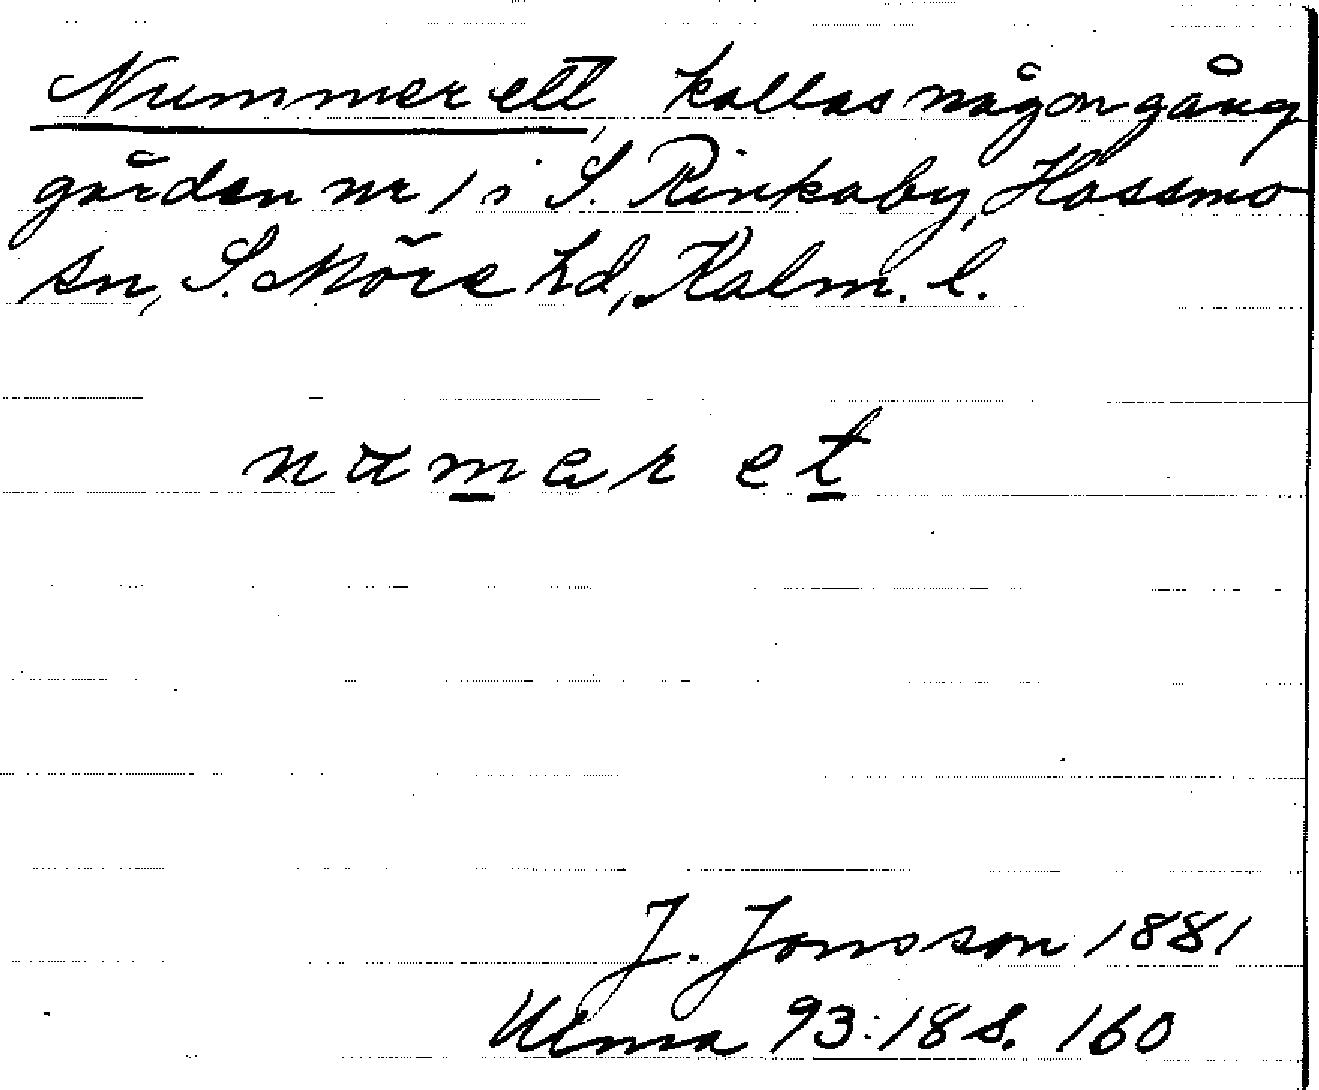 Nummer ett, kallas någon gång
gården nr 1 i S. Rinkaby, Hossmo
sn, S. Möre hd, Kalm. l.
numar et
J. Jonsson 1881
Ulma 93:18 s. 160